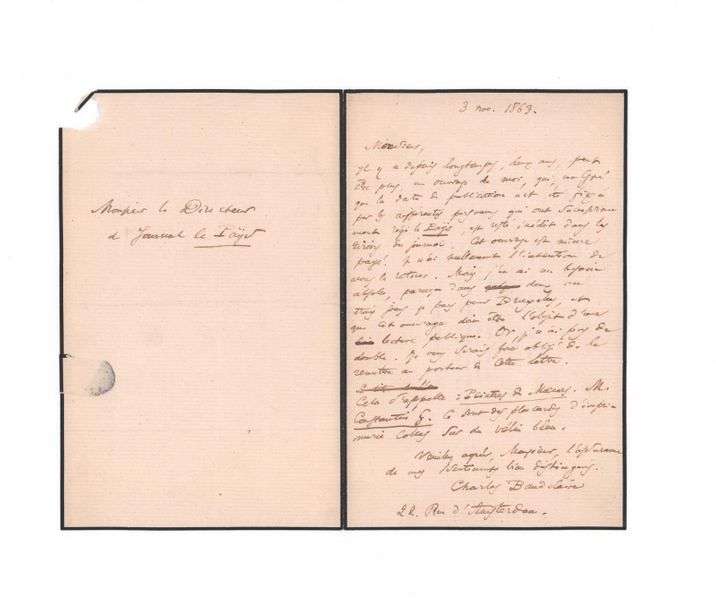 Monsieur le Directeur
du Journal le Pays
3 nov. 1863.
Monsieur,
Il y a depuis longtemps, deux ans, peut
être plus, un ouvrage de moi, qui, malgré
que la date de publication ait été fixée
par les différentes personnes qui ont
régi le Pays, est resté inédit dans les
tiroirs du journal. Cet ouvrage est même
payé. Je n'ai nullement l'intention de
vous le retirer. Mais, j'en ai un besoin
absolu, parce que dans deux ou
trois jours je pars pour Bruxelles, et
que cet ouvrage doit être l'objet d'une
lecture publique. Or, je n'ai pas de
double. Je vous serais fort obligé de le
remettre au porteur de cette lettre.
Cela s'appelle : Peintres de Mœurs. M.
Constantin G. Ce sont des placards d'impri-
merie collés sur du vélin bleu.
Veuillez agréer, Monsieur, l'assurance
de mes sentiments bien distingués.
Charles Baudelaire
22. Rue d'Amsterdam.